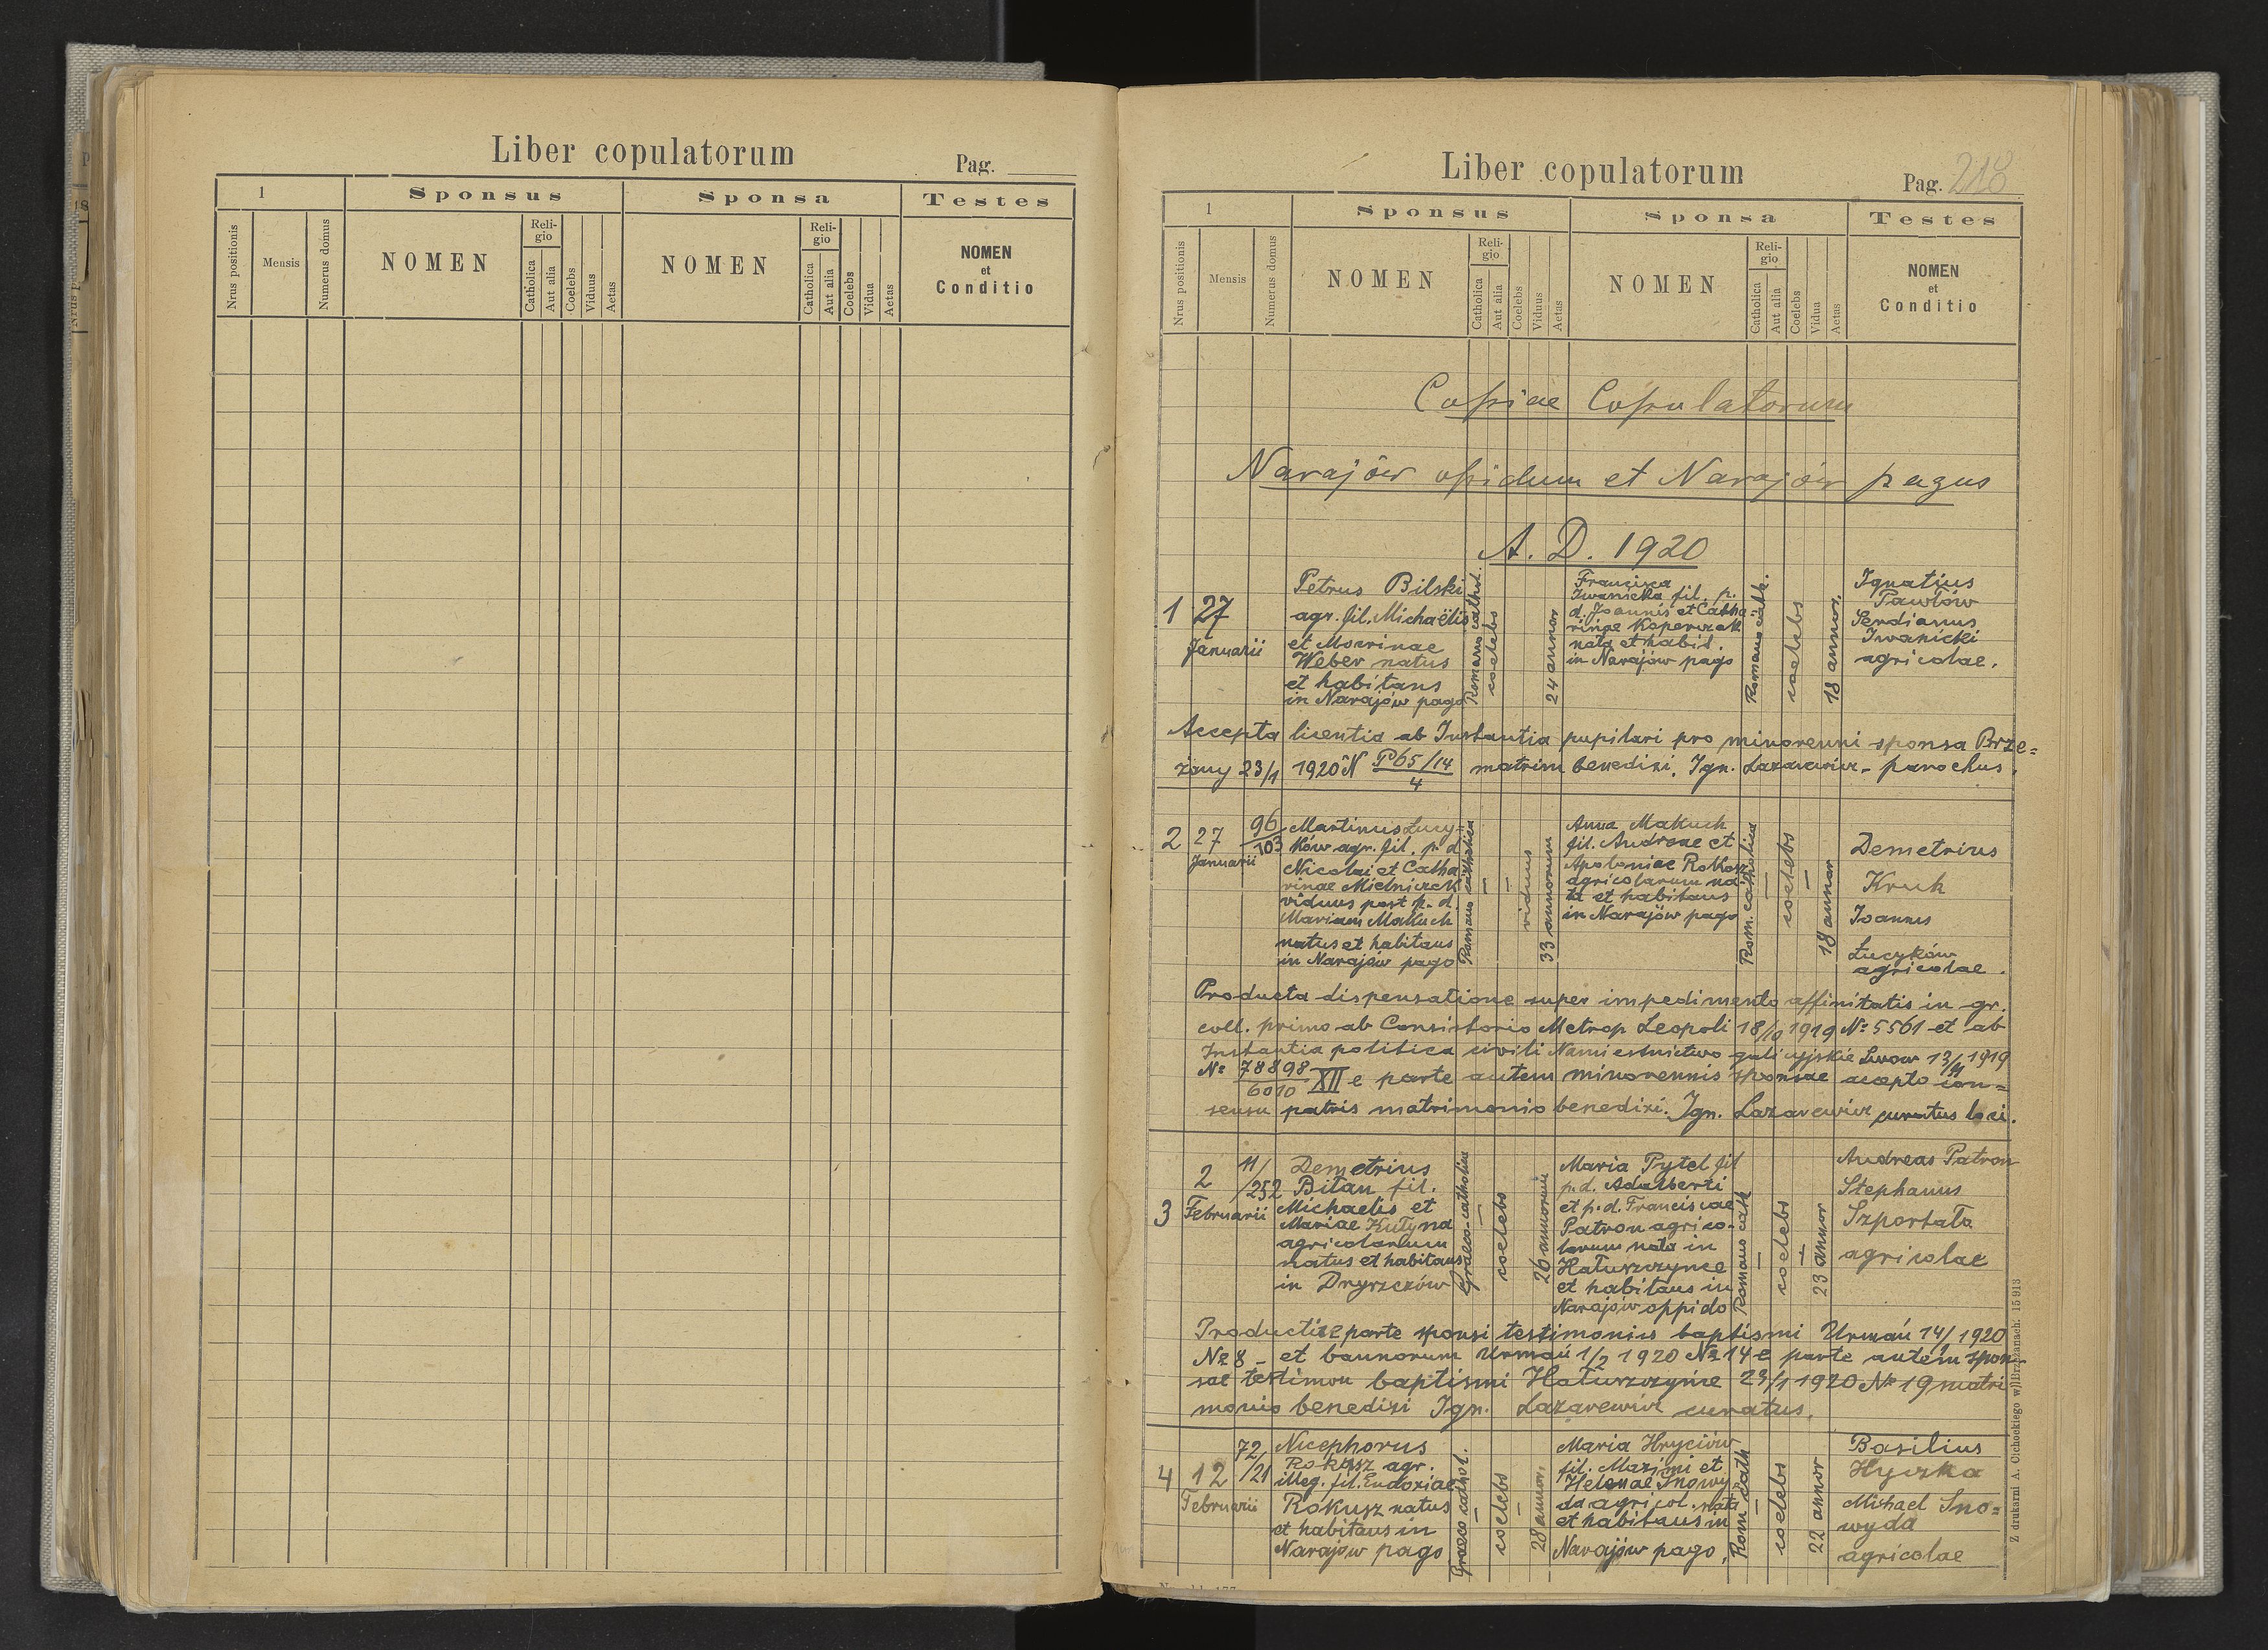 Liber copulatorum
Pag.
1
Sponsus
Sponsa
Testes
Nrus positionis
Mensis
Numerus domus
NOMEN
Reli-
gio
Catholica
Aut alia
Coelebs
Viduus
Aetas
NOMEN
Reli-
gio
Catholica
Aut alia
Coelebs
Vidua
Aetas
NOMEN
et
Conditio
Liber copulatorum
Pag. 218
1
Sponsus
Sponsa
Testes
Nrus positionis
Mensis
Numerus domus
NOMEN
Reli-
gio
Catholica
Aut alia
Coelebs
Viduus
Aetas
NOMEN
Reli-
gio
Catholica
Aut alia
Coelebs
Vidua
Aetas
NOMEN
et
Conditio
Copiae Copulatorum
Narajów opidum et Narajów pagus
A. D. 1920
1
27
Januarii
Petrus Bilski
agr. fil. Michaëlis
et Marinae
Weber natus
et habitans
in Narajów pago
Romano cathol.
coelebs
24 annor
Francisca
Iwanicka fil. p.
d. Joannis et Catha
rinae Koperczak
nata et habit.
in Narajów pago
Romano cath.
coelebs
18 annor.
Ignatius
Pawlów
Serdianus
Iwanicki
agricolae.
Accepta licentia ab Instantia pupilari pro minorenni sponsa Brze=
żany 23/1 1920 N P65/14/4 matrim benedixi. Ign. Lazarewicz - parochus.
2
27
Januarii
96/103
Martinus Lucy=
ków agr. fil. p. d
Nicolai et Catha
rinae Mielniczek
viduus post p. d
Mariam Makuch
natus et habitans
in Narajów pago
Romano catholica
viduus
33 annorum
Anna Makuch
fil. Andreae et
Apoloniae Rokosz
agricolarum na
ta et habitans
in Narajów pago
Rom. catholica
coelebs
18 annor
Demetrius
Kruk
Joannes
Łucyków
agricolae.
Producta dispensatione super impedimento affinitatis in gr.
coll. primo ab Consistorio Metrop Leopoli 18/10 1919 № 5561 et ab
Instantia politica civili Namiestnictwo galicyjskie Lwow 13/11 1919
№ 78898/6010 XII e parte autem minorennis sponsae acepto con=
sensu patris matrimonio benedixi. Ign. Lazarewicz curatus loci.
3
2
Februarii
11/252
Demetrius
Bitan fil.
Michaelis et
Mariae Kutyna
agricolarum
natus et habitans
in Dryszczów
Graeco-catholica
coelebs
26 annorum
Maria Pytel fil
p.d. Adalberti
et p.d. Franciscae
Patron agrico-
larum nata in
Hałuszczyńce
et habitans in
Narajów oppido
Romano cath
coelebs
23 annor
Andreas Patron
Stephanus
Szportała
agricolae
Productis e parte sponsi testimoniis baptismi Urmań 14/1920
№ 8 - et bannorum Urmań 1/2 1920 № 14 e parte autem spon
sae testimon baptismi Hałuszczyńce 23/1 1920 № 19 matri
monio benedixi Ign. Lazarewicz curatus.
4
12
Februarii
72/21
Nicephorus
Rokusz agr.
illeg. fil. Eudoxiae
Rokusz natus
et habitans in
Narajów pago
Graeco cathol.
coelebs
28 annor.
Maria Hryciów
fil. Maximi et
Helenae Snowy
da agricol. nata
et habitans in
Narajów pago,
Rom cath
coelebs
22 annor
Basilius
Hyczka
Michael Sno=
wyda
agricolae
Z drukarni A. Cichockiego w Brzeżanach. 15 913